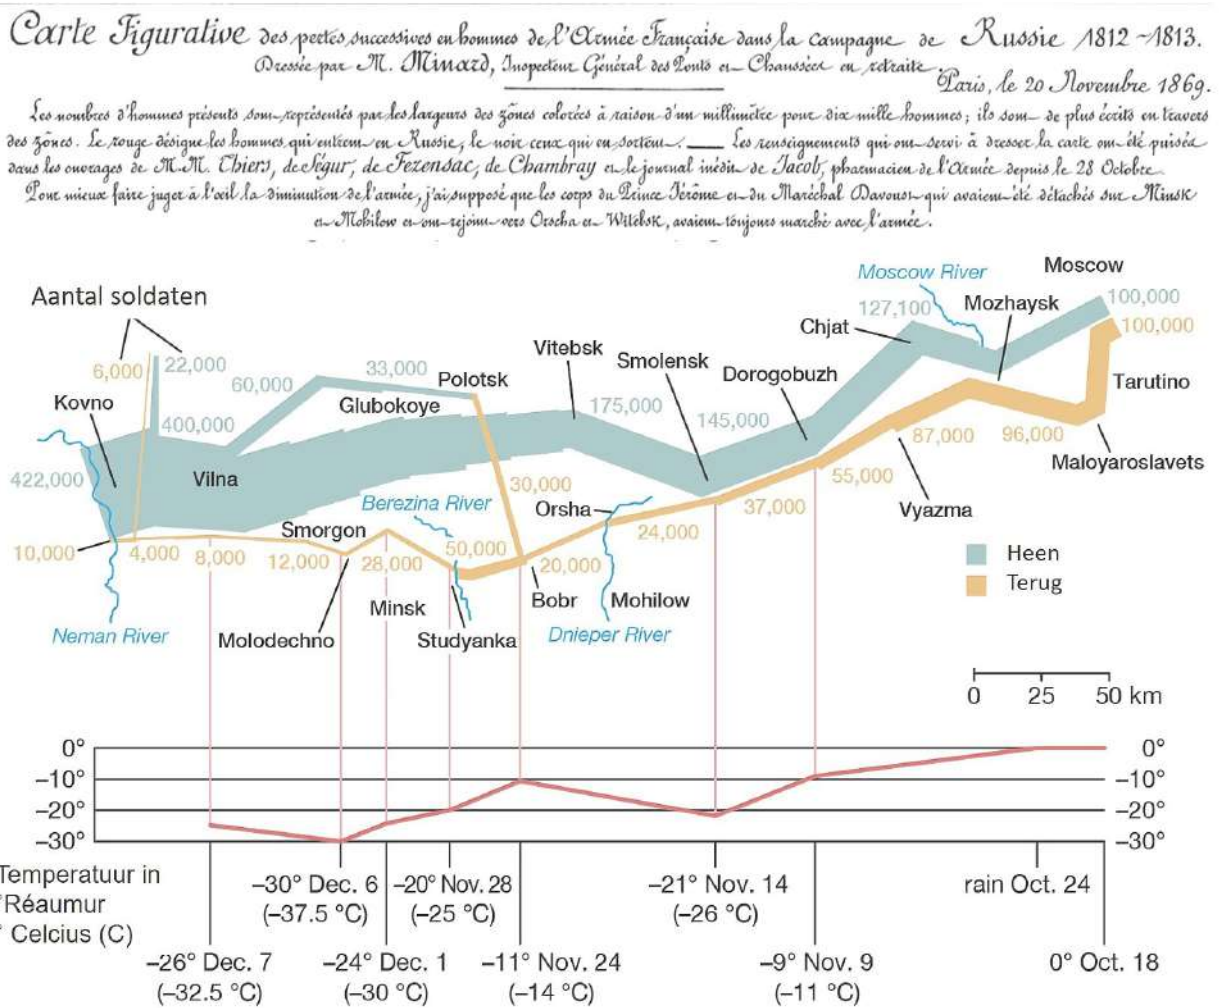 Carte Figurative des pertes successives en hommes de l'Armée Française dans la campagne de Russie 1812-1813.
Dressée par M. Minard, Inspecteur Général des Ponts et Chaussées en retraite.
Paris, le 20 Novembre 1869.
Les nombres d'hommes présents sont représentés par les largeurs des zônes colorées à raison d'un millimètre pour dix mille hommes; ils sont de plus écrits en travers
des zônes. Le rouge désigne les hommes qui entrent en Russie, le noir ceux qui en sortent. Les renseignements qui ont servi à dresser la carte ont été puisés
dans les ouvrages de M.M. Thiers, de Ségur, de Fezensac, de Chambray et le journal inédit de Jacob, pharmacien de l'Armée depuis le 28 Octobre.
Pour mieux faire juger à l'œil la diminution de l'armée, j'ai supposé que les corps du Prince Jérôme et du Maréchal Davoust qui avaient été détachés sur Minsk
et Mohilow et ont rejoint vers Orscha et Witebsk, avaient toujours marché avec l'armée.
Moscow River
Moscow
Aantal soldaten
127,100
Mozhaysk
100,000
100,000
Chjat
Vitebsk
Smolensk
6,000
22,000
60,000
33,000
Polotsk
Dorogobuzh
Tarutino
Kovno
Glubokoye
175,000
145,000
400,000
87,000
96,000
Maloyaroslavets
422,000
Vilna
30,000
55,000
Berezina River
Orsha
37,000
Vyazma
Smorgon
24,000
10,000
4,000
8,000
12,000
28,000
50,000
20,000
Heen
Terug
Minsk
Bobr
Mohilow
Neman River
Molodechno
Studyanka
Dnieper River
0 25 50 km
0° 0°
–10° –10°
–20° –20°
–30° –30°
Temperatuur in
°Réaumur
° Celcius (C)
–30° Dec. 6 –20° Nov. 28 –21° Nov. 14 rain Oct. 24
(–37.5 °C) (–25 °C) (–26 °C)
–26° Dec. 7 –24° Dec. 1 –11° Nov. 24 –9° Nov. 9 0° Oct. 18
(–32.5 °C) (–30 °C) (–14 °C) (–11 °C)